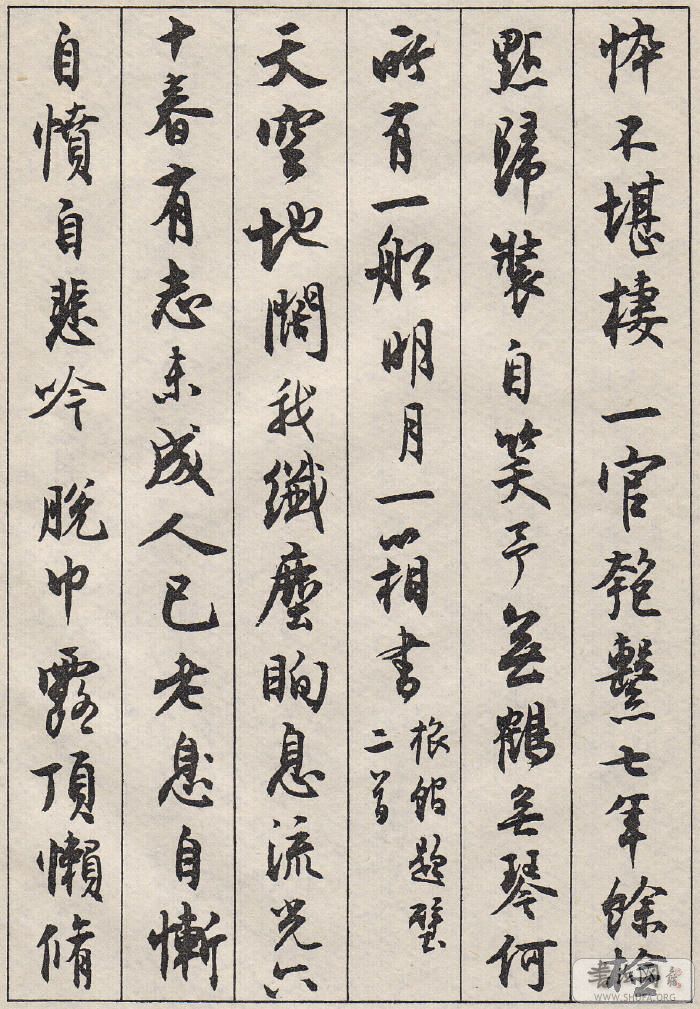 悴不堪棲一官匏繫七年餘檢
點歸裝自笑予無鶴無琴何
所有一船明月一箱書
旅館題壁
二首
天空地闊我纖塵眴息流光六
十春有志未成人已老自慙
自憤自悲吟脫巾露頂懶脩
WWW.SHUFA.ORG